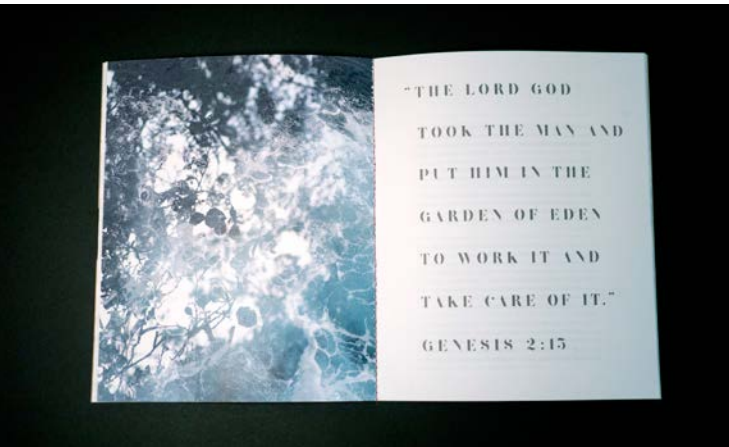 "THE LORD GOD
TOOK THE MAN AND
PUT HIM IN THE
GARDEN OF EDEN
TO WORK IT AND
TAKE CARE OF IT."
GENESIS 2:15